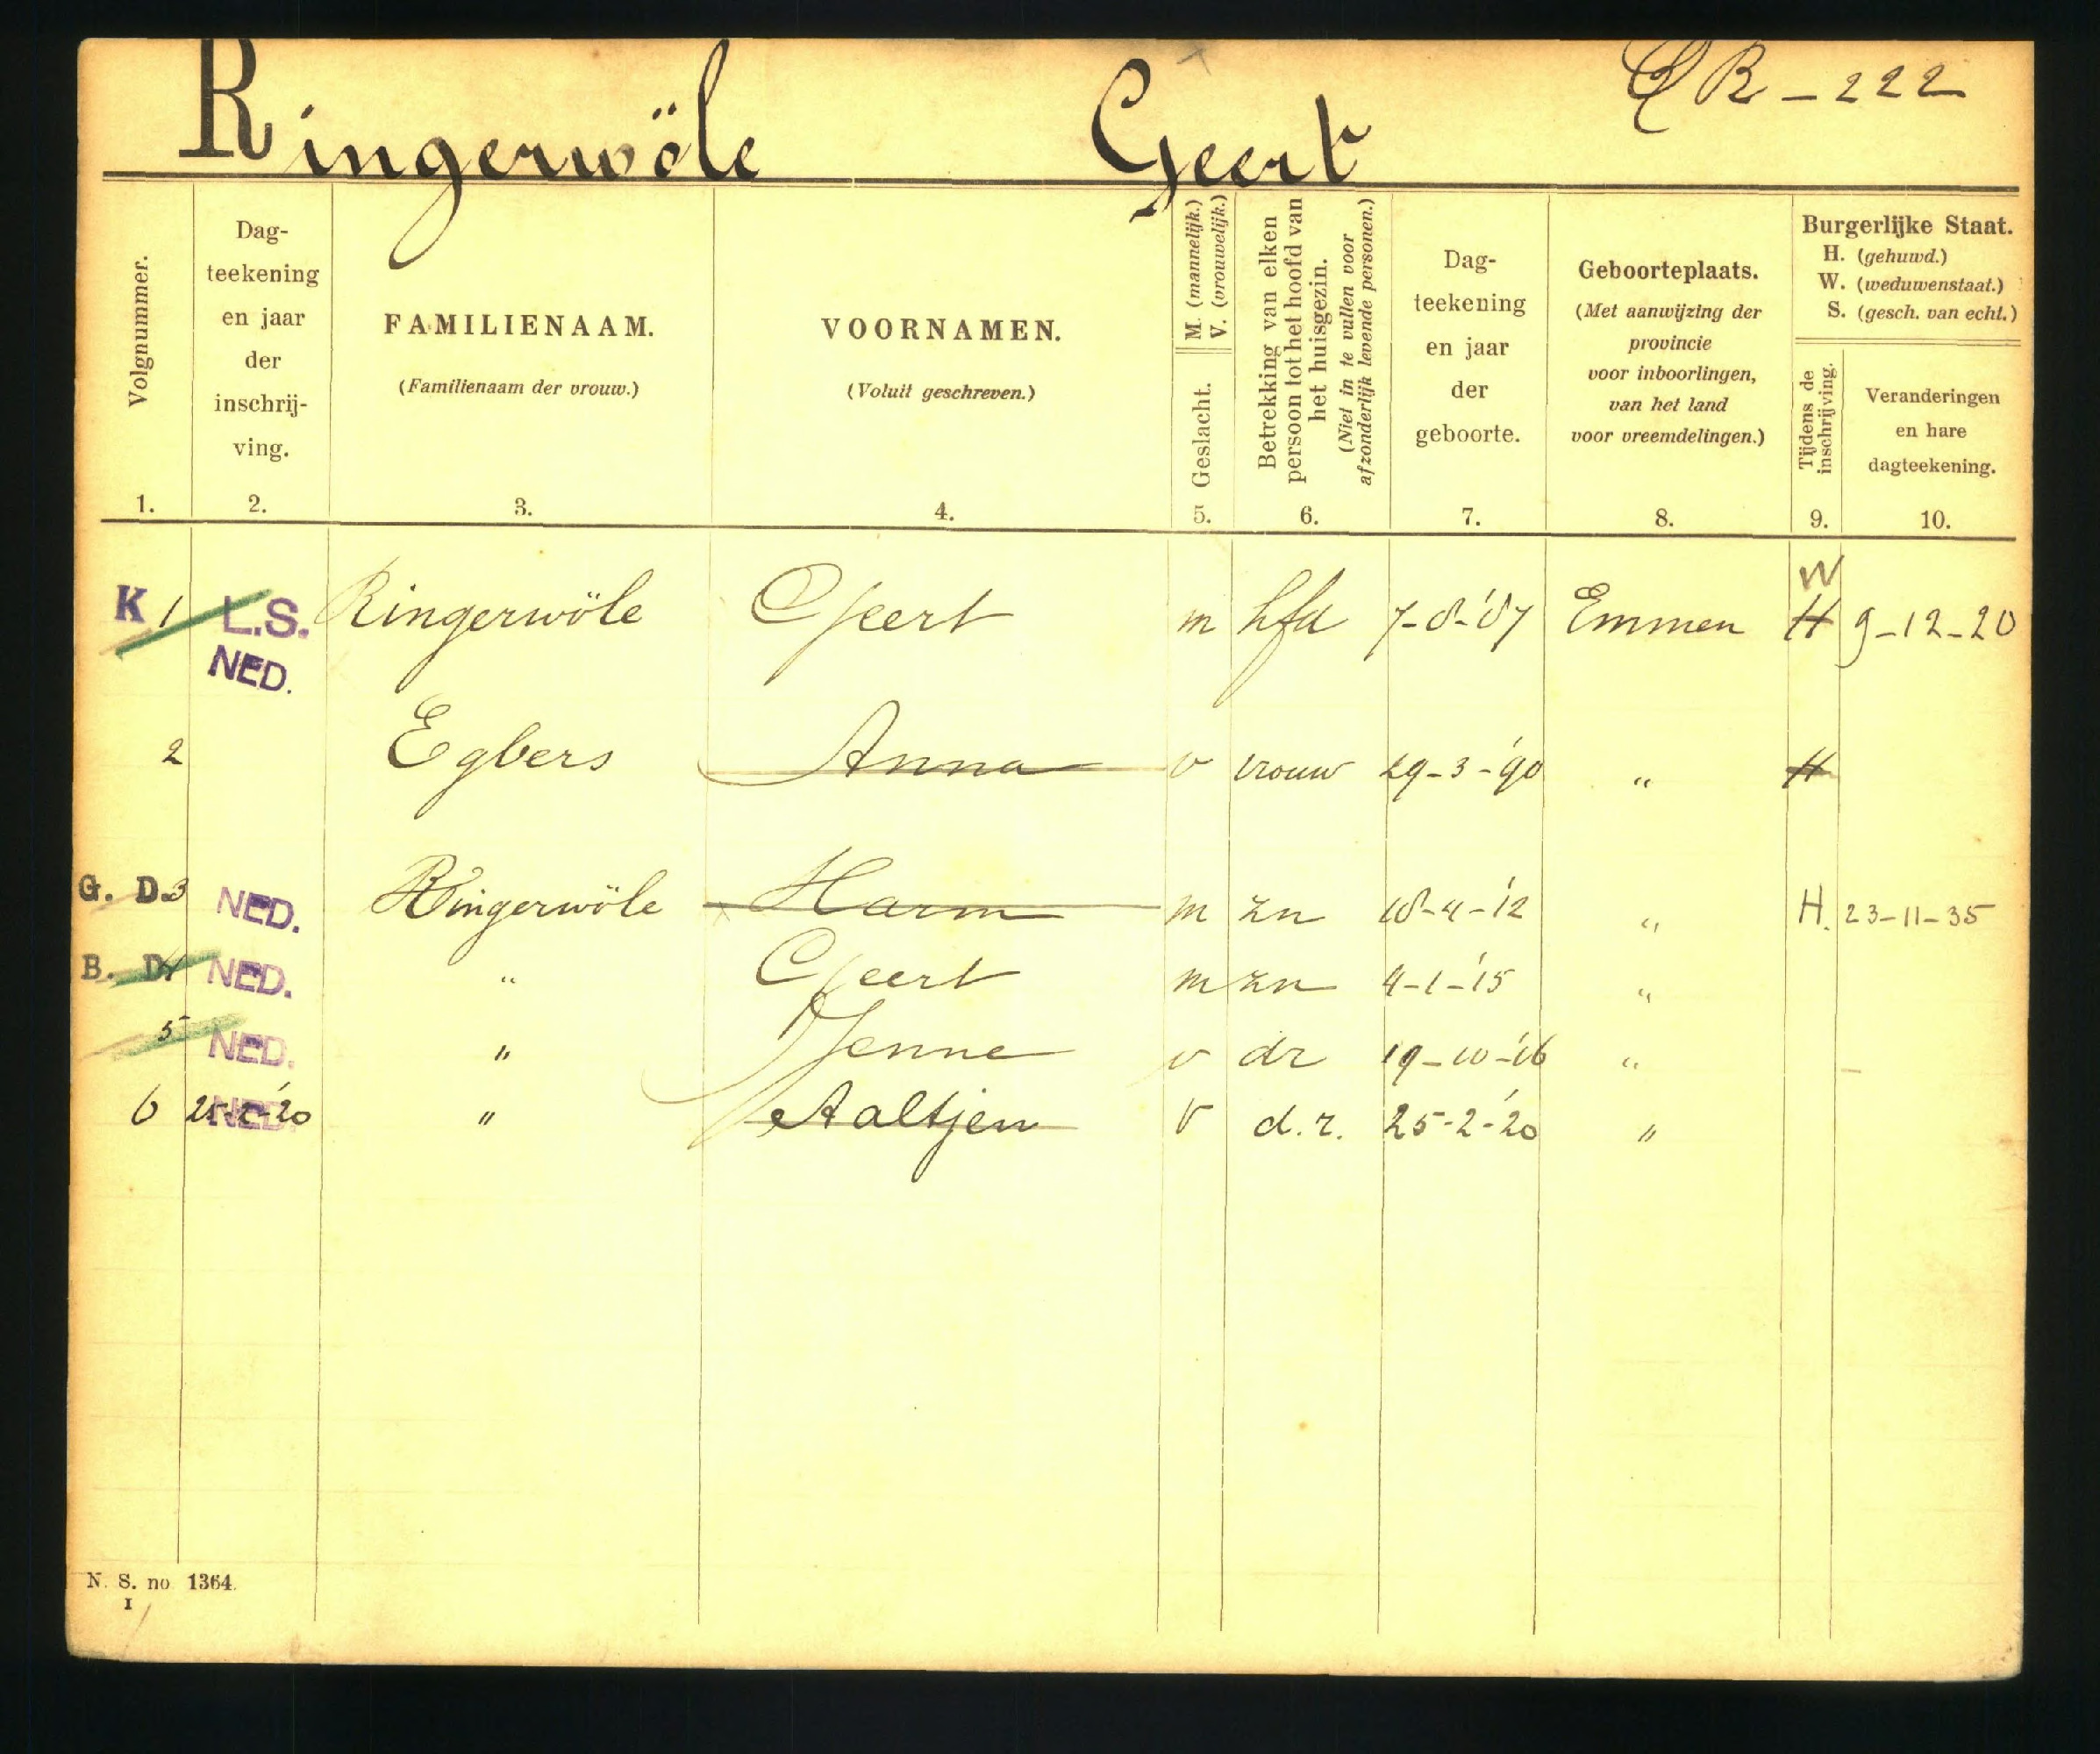 Ringerwöle Geert CR-222
Volgnummer.
1.
Dag-
teekening
en jaar
der
inschrij-
ving.
2.
FAMILIENAAM.
(Familienaam der vrouw.)
3.
VOORNAMEN.
(Voluit geschreven.)
4.
M. (mannelijk.)
V. (vrouwelijk.)
Geslacht.
5.
Betrekking van elken
persoon tot het hoofd van
het huisgezin.
(Niet in te vullen voor
afzonderlijk levende personen.)
6.
Dag-
teekening
en jaar
der
geboorte.
7.
Geboorteplaats.
(Met aanwijzing der
provincie
voor inboorlingen,
van het land
voor vreemdelingen.)
8.
Burgerlijke Staat.
H. (gehuwd.)
W. (weduwenstaat.)
S. (gesch. van echt.)
Tijdens de
inschrijving.
9.
Veranderingen
en hare
dagteekening.
10.
W
K 1 L.S. Ringerwöle Geert m hfd 7-8-'87 Emmen H 9-12-20
NED.
2 Egbers Anna v vrouw 29-3-'90 " H
G. D. 3 NED. Ringerwöle Harm m zn 18-4-'12 " H. 23-11-35
B. D. 4 NED. " Geert m zn 4-1-'15 "
5 NED. " Jenne v dr 19-10-'16 "
6 25-2-'20 NED. " Aaltjen v d.r. 25-2-'20 "
N. S. no 1364.
I